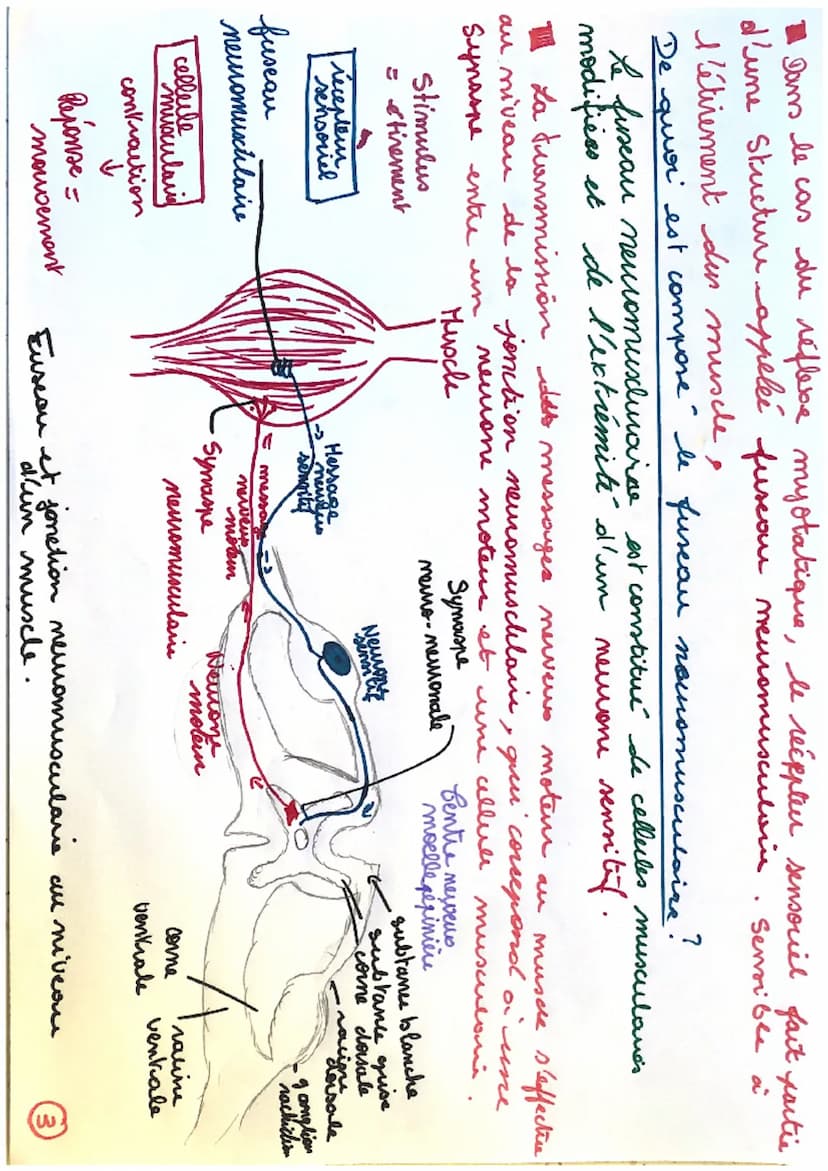 Dans le cas du réflexe myotatique, le récepteur sensoriel fait partie
d'une Structure appelée fuseau neuromusculaire. Sensible à
l'étirement du muscle.
De quoi est composé le fuseau neuromusculaire ?
Le fuseau neuromusculaire est constitué de cellules musculaires
modifiées et de l'extrémité d'un neurone sensitif.
La transmission des messages nerveux moteur au muscle s'effectue
au niveau de la jonction neuromusculaire, qui correspond à une
Synapse entre un neurone moteur et une cellule musculaire.
Stimulus
= étirement
récepteur
sensoriel
fuseau
neuromusculaire
cellule
musculaire
contraction
Réponse =
mouvement
Muscle
→ Message
nerveux
sensitif
= message
nerveux
moteur
Synapse
neuromusculaire
Synapse
neuro-neuronale
Neurone
sensitif
Neurone
moteur
Centre nerveux
moelle épinière
substance blanche
substance grise
corne dorsale
racine
dorsale
ganglion
rachidien
corne
ventrale
racine
ventrale
Fuseau et jonction neuromusculaire au niveau
d'un muscle.
3